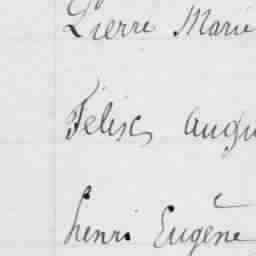 Pierre Marie
Félix, Augu
henri Eugène